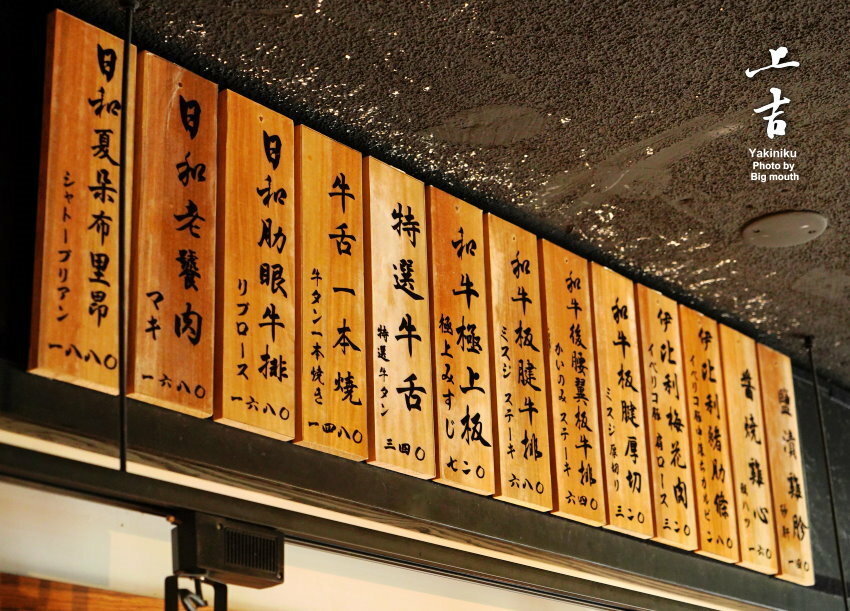 上吉
Yakiniku
Photo by
Big mouth
日和夏朵布里昂
シャトーブリアン
一八八〇
日和老饕肉
マキ
一六八〇
日和肋眼牛排
リブロース
一六八〇
牛舌一本燒
牛タン一本焼き
一四八〇
特選牛舌
特選牛タン
三四〇
和牛極上板
極上みすじ
七二〇
和牛板腱牛排
ミスジ ステーキ
六八〇
和牛後腰翼板牛排
かいのみ ステーキ
六四〇
和牛板腱厚切
ミスジ 厚切り
三二〇
伊比利梅花肉
イベリコ豚 肩ロース
三二〇
伊比利豬肋條
醬燒雞心
一六〇
鹽漬雞胗
砂肝